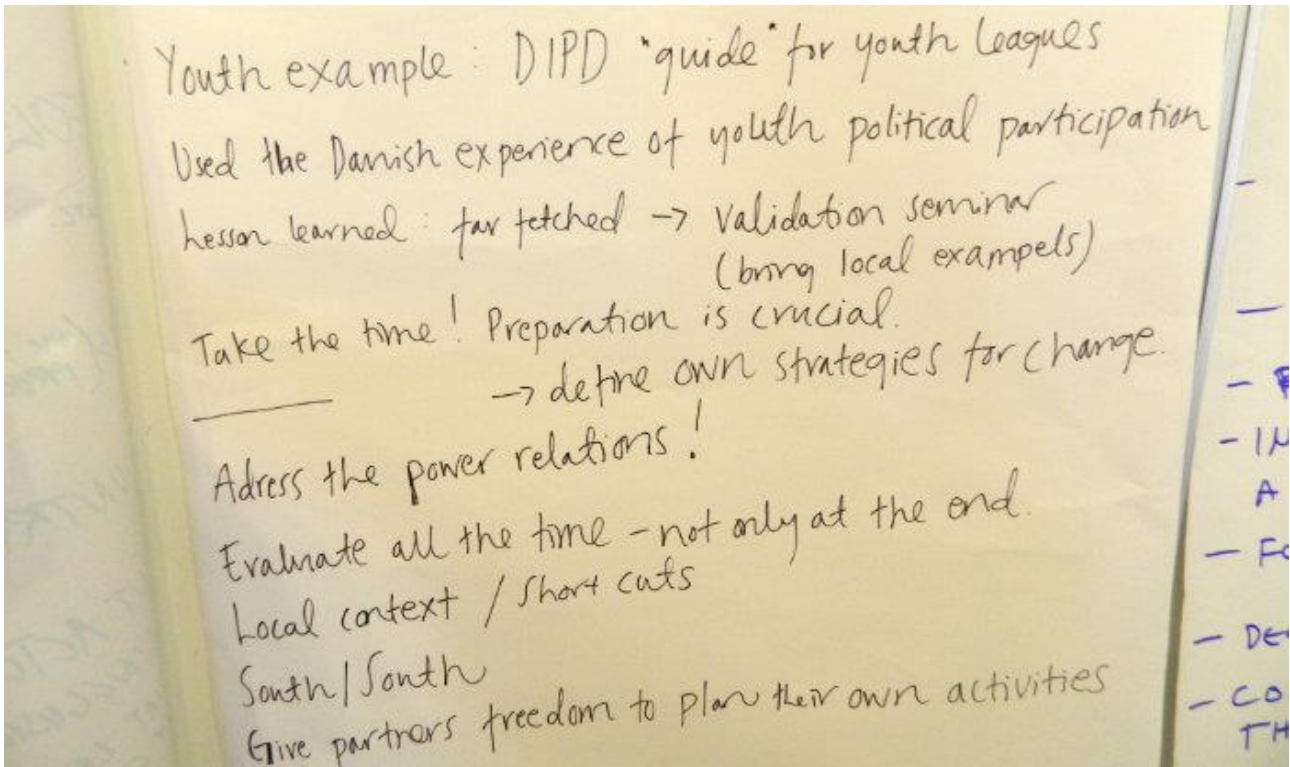 Youth example : DIPD "guide" for youth leagues
Used the Danish experience of youth political participation
Lesson learned : far fetched → Validation seminar
(bring local exampels)
Take the time! Preparation is crucial.
→ define own strategies for change.
Adress the power relations!
Evaluate all the time - not only at the end.
Local context / Short cuts
South/South
Give partners freedom to plan their own activities
-
-
-
- IN
A
- FO
- DE
- CO
TH